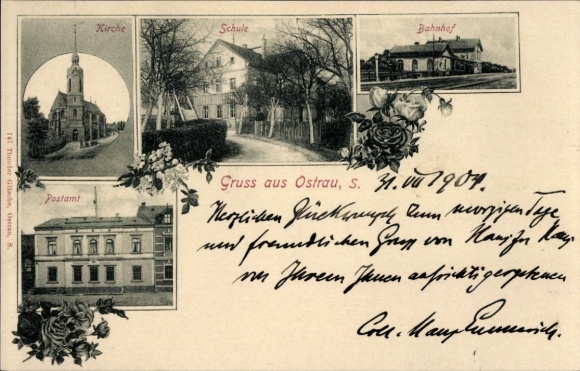 Kirche
Schule
Bahnhof
Postamt
Gruss aus Ostrau, S.
31. VII 1904.
Herzlichen Glückwunsch zum morgigen Tage
und freundlichen Gruß von
von Ihrem Ihnen aufrichtig ergebenen
Coll.
147 Theodor Gläsche, Ostrau, S.